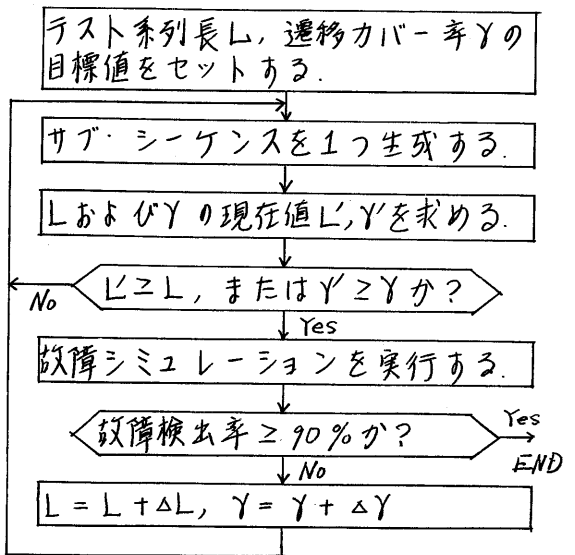 テスト系列長L, 遷移カバー率γの
目標値をセットする.
サブ・シーケンスを1つ生成する.
Lおよびγの現在値L′,γ′を求める.
L′≥L, またはγ′≥γか?
No
Yes
故障シミュレーションを実行する.
故障検出率≥90%か?
Yes
END
No
L=L+ΔL, γ=γ+Δγ